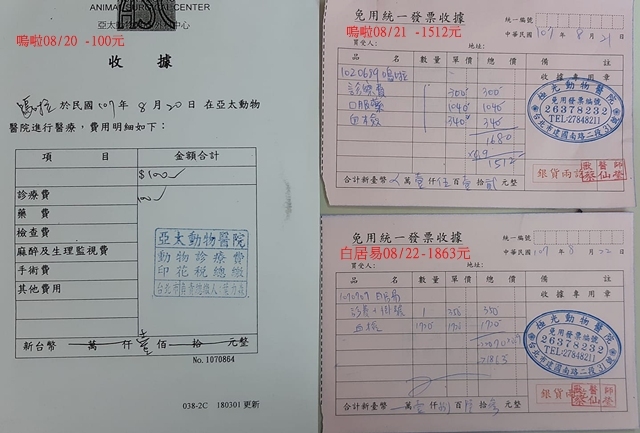 ANIMAL SURGICAL CENTER
嗚啦08/20 -100元
收 據
嗚啦 於民國 107 年 8 月 20 日 在亞太動物
醫院進行醫療，費用明細如下：
項 目 金額合計
$100
診療費 100
藥 費
檢查費
麻醉及生理監視費
手術費
其他費用
亞太動物醫院
動物診療費
印花稅總繳
新台幣 萬 仟 壹 佰 拾 元整
No. 1070864
038-2C 180301 更新
免用統一發票收據
嗚啦08/21 -1512元
統一編號
中華民國 107 年 8 月 21 日
買受人： 地址：
品 名 數量 單價 總價 備 註
收據專用章
1020679 嗚啦
診療費 300 300
口服藥 1040 1040
血檢 340 340
1680
×0.9
1512
極光動物醫院
免用發票編號
26378232
TEL:27848211
台北市建國南路二段31號
銀貨兩訖
醫師
合計新台幣 萬 壹 仟 伍 百 壹 拾 貳 元整
免用統一發票收據
白居易08/22 -1863元
統一編號
中華民國 107 年 8 月 22 日
買受人： 地址：
品 名 數量 單價 總價 備 註
收據專用章
白居易
1 350 350
血檢 1720 1720 1720
1863
極光動物醫院
免用發票編號
26378232
TEL:27848211
台北市建國南路二段31號
銀貨兩訖
醫師
合計新台幣 萬 壹 仟 捌 百 陸 拾 參 元整